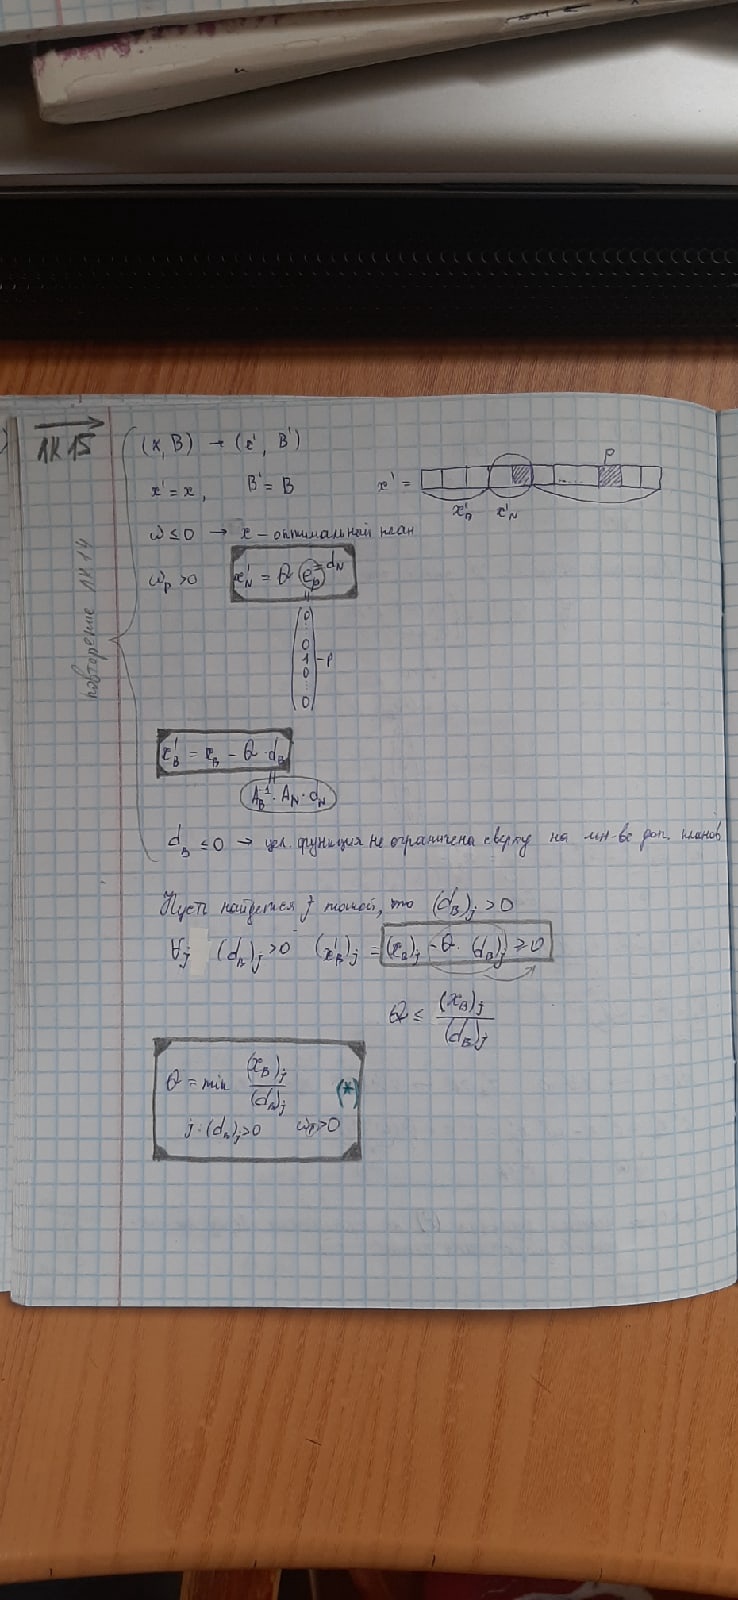 ЛК 15
повторение ЛК 14
(x, B) → (x', B')
x' = x, B' = B x' =
p
x'_B x'_N
ω ≤ 0 → x – оптимальный план
ω_p > 0 x'_N = θ · e_p = d_N
0
...
0
1 – p
0
...
0
x'_B = x_B – θ · d_B
A_B^{-1} · A_N · d_N
d_B ≤ 0 → цел. функция не ограничена сверху на мн-ве доп. планов
Пусть найдется j такой, что (d_B)_j > 0
∀j (d_B)_j > 0 (x'_B)_j = (x_B)_j – θ · (d_B)_j ≥ 0
θ ≤ (x_B)_j / (d_B)_j
θ = min (x_B)_j / (d_B)_j (*)
j : (d_B)_j > 0 ω_p > 0